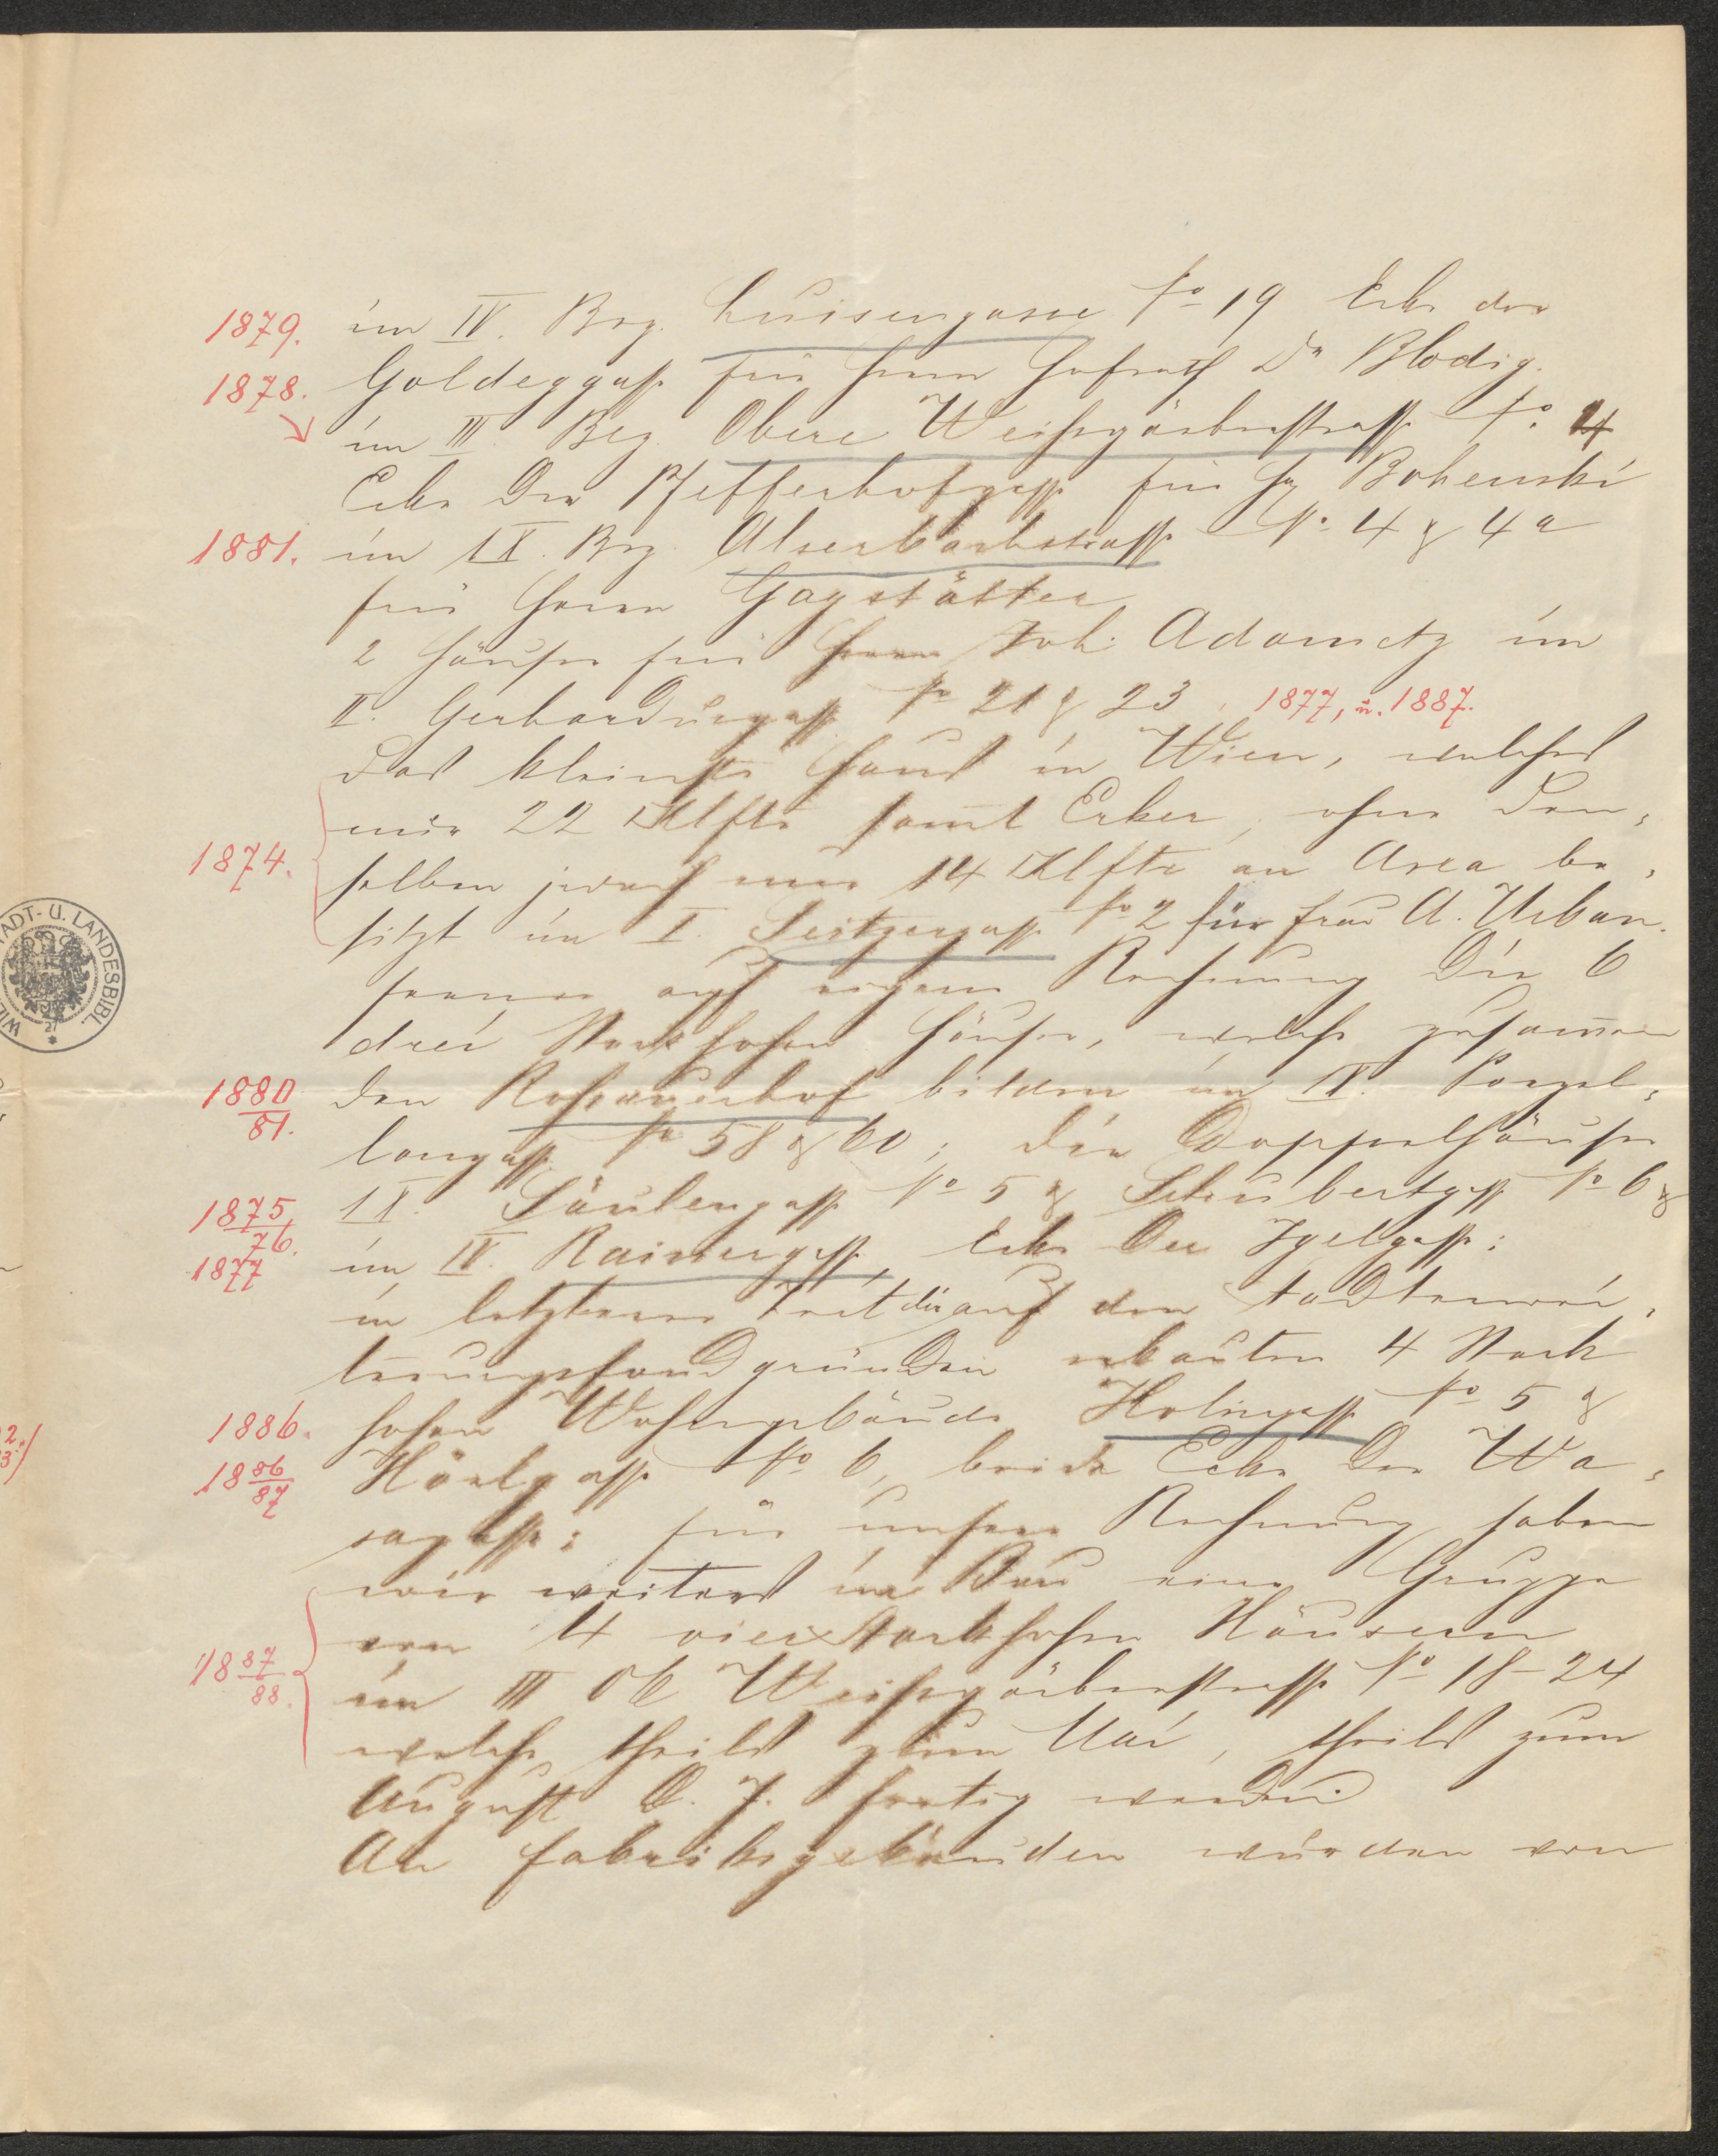 1879. im IV. Bez. Luisengasse No 19 Ecke der
1878. Goldeggasse für Herrn Hofrath Dr Blodig.
im III. Bez. Obere Weißgärberstrasse No. 4
Ecke der Pfefferhofgasse für H. Bohenski
1881. im IX. Bez. Alserbachstrasse No. 4 & 4a
für Herrn Gagstätter
2 Häuser für Herrn Joh. Adametz im
II. Gerhardusgasse No 21 & 23, 1877, u. 1887.
Das kleinste Haus in Wien, welches
1874. nur 22 □Klftr sammt Erker, ohne den-
selben jedoch nur 14 □Klftr an Area be-
sitzt im I. Seitzergasse No 2 für Frau A. Urban.
ferner auf eigene Rechnung die 6
drei Stock hohen Häuser, welche zusammen
1880/81. den Rossauerhof bilden im IX. Porzel-
langasse No 58 & 60; die Doppelhäuser
1875/76. IX. Säulengasse No 5 & Schubertgasse No 6 &
1877 im IV. Rainergasse Ecke der Igelgasse;
in letzterer Zeit die auf den Stadterwei-
terungsfondgründen erbauten 4 Stock
1886. hohen Wohngebäude Kolingasse No 5 &
1886/87 Hörlgasse No 6, beide Ecke der Wa-
sagasse; für unsere Rechnung haben
wir weiters im Bau eine Gruppe
von 4 vier Stock hohen Häusern
1887/88. im III Ob Weißgärberstrasse No 18-24
welche theils zum Mai, theils zum
August d. J. fertig werden.
An Fabriksgebäuden wurden von
STADT- U. LANDESBIBL.